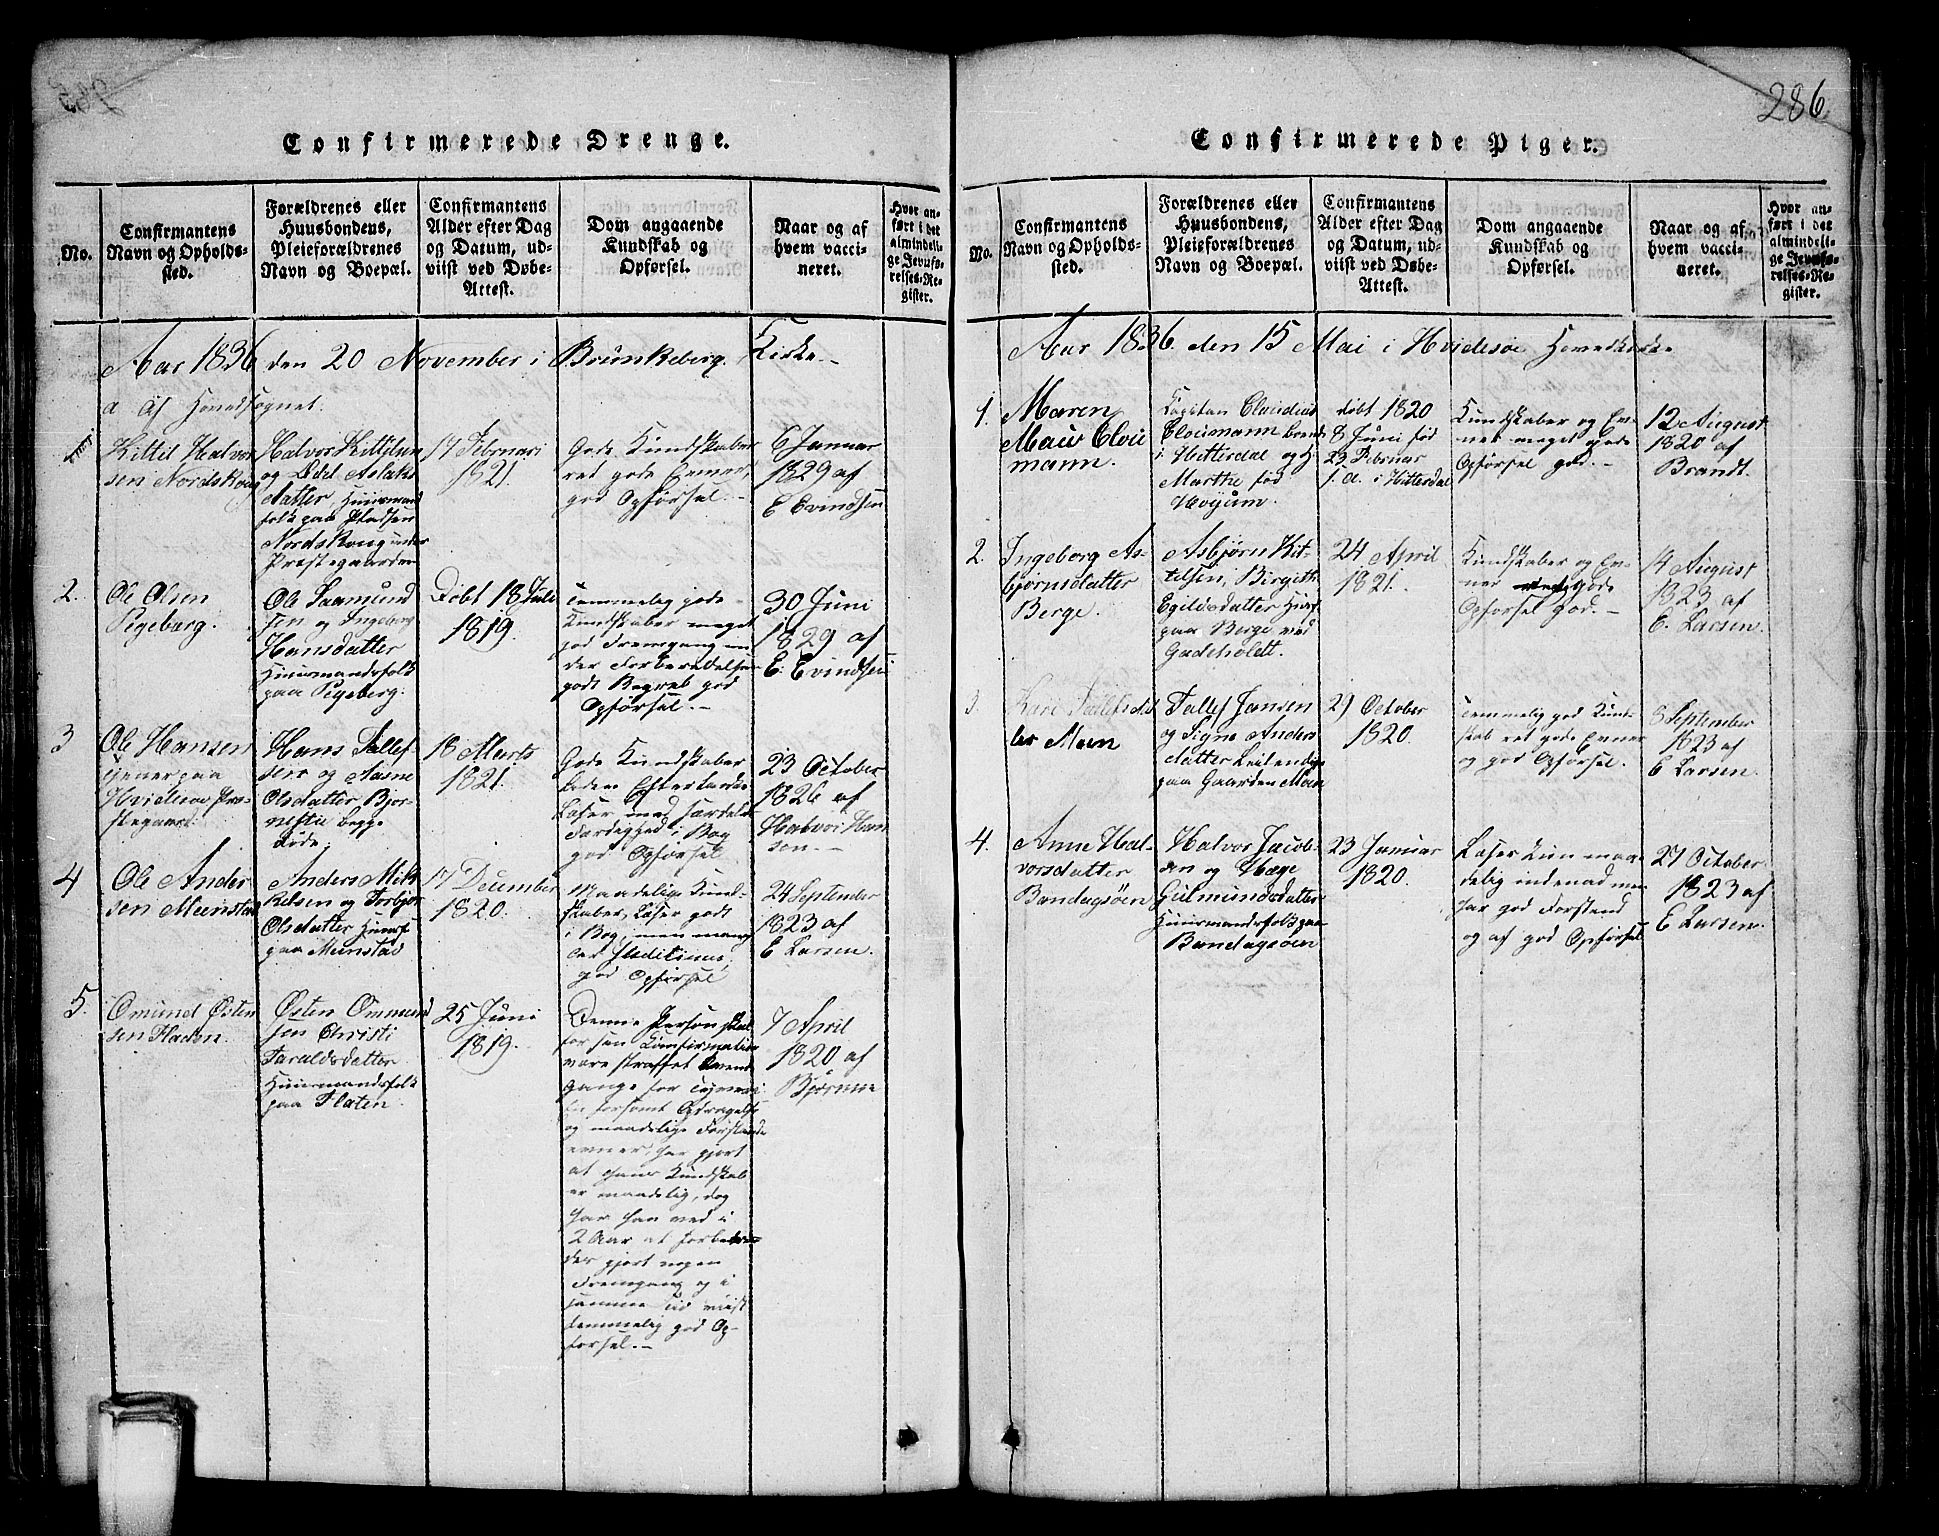 286.
Confirmerede Drenge.
No.
Confirmantens
Navn og Opholds-
sted.
Forældrenes eller
Huusbondens,
Pleieforældrenes
Navn og Boepæl.
Confirmantens
Alder efter Dag
og Datum, ud-
viist ved Døbe-
Attest.
Dom angaaende
Kundskab og
Opførsel.
Naar og af
hvem vacci-
neret.
Hvor an-
ført i det
almindeli-
ge Jevnfø-
relses-Re-
gister.
Aar 1836 den 20 November i Brunkeberg Kirke.
a Af Hovedsognet.
1
Kittil Halvor
sen Nordskoug
Halvor Kittilsen
og Aslaks
datter Huusmand
folk paa Pladsen
Nordskoug under
Præstegaarden
17 Februari
1821.
Gode Kundskaber
ret gode Evner,
god Opførsel.
6 Januar
1829 af
E Evindsen
2.
Ole Olsen
Pigeberg.
Ole Saamund
sen og Ingeborg
Hansdatter
Huusmandsfolk
paa Pigeberg.
Døbt 18 Juli
1819.
Temmelig gode
Kundskaber meget
god Fremgang un
der Forberedelsen
godt Begreb god
Opførsel.
30 Juni
1829 af
E. Evindsen
3
Ole Hansen
tjener paa
Hvidesøe Præ-
stegaard.
Hans Tallef
sen og Aasne
Olsdatter Bjor-
begge
døde.
18 Marts
1821.
Gode Kundskaber
Læser med særdeles
Færdighed i Bog
god Opførsel
23 October
1826 af
Halvor Han
sen.
4
Ole Ander
sen Meenstad
Anders Mik
kelsen og Torbjør
Olsdatter Huusf
paa Meenstad
17 December
1820.
Maadelige Kund-
skaber, Læser godt
i Bog, men mang
ler
god Opførsel
24 September
1823 af
E Larsen.
5.
Omund Østen
sen Flaten.
Østen Ommund
sen Christi
Taraldsdatter
Huusmandsfolk
paa Flaten.
25 Juni
1819.
Denne Person skal
før sin Confirmation
være straffet
gange for Tyveri
En forsømt Opdragelse
og maadelige Forstands
evner, har gjort
at hans Kundskab
er maadelig, dog
har han ved i
2 Aar at forbere
des gjort nogen
Fremgang og i
samme Tid viist
temmelig god Op-
førsel.
7 April
1820 af
Bjørnne
Confirmerede Piger.
No.
Confirmantens
Navn og Opholds-
sted.
Forældrenes eller
Huusbondens,
Pleieforældrenes
Navn og Boepæl.
Confirmantens
Alder efter Dag
og Datum, ud-
viist ved Døbe-
Attest.
Dom angaaende
Kundskab og
Opførsel.
Naar og af
hvem vacci-
neret.
Hvor an-
ført i det
almindeli-
ge Jevnfø-
relses-Re-
gister.
Aar 1836. den 15 Mai i Hvidesøe Hovedkirke
1.
Maren
Mauv Cloui
mann.
Capitan Claudius
Clouimann
i Hitterdal og H
Marthe fød
døbt 1820
8 Juni fød
23 Februar
s. A. i Hitterdal
Kundskaber og Ev-
ner meget gode
Opførsel god.
12 August
1820 af
Brandt.
2.
Ingeborg As-
bjørnsdatter
Berge.
Asbjørn Kit-
tilsen, Birgith
Egilsdatter Huusf
paa Berge ved
24 April
1821.
Kundskaber og Ev-
ner gode
Opførsel god.
14 August
1823 af
E. Larsen.
3.
Kari Tallefsdat
ter Meen
Tallef Jansen
og Signe Anders
datter Leilending
paa Gaarden Meen
29 October
1820.
Temmelig god Kund-
skab ret gode Evner
og god Opførsel.
8 September
1823 af
E Larsen.
4.
Anne Hal-
vorsdatter
Bandagsøen
Halvor Jacob-
sen og Hæge
Gulmundsdatter
Huusmandsfolk paa
Bandagsøen
23 Januar
1820.
Læser kun maa-
delig indenad men
har god Forstand
og af god Opførsel
27 October
1823 af
E Larsen.